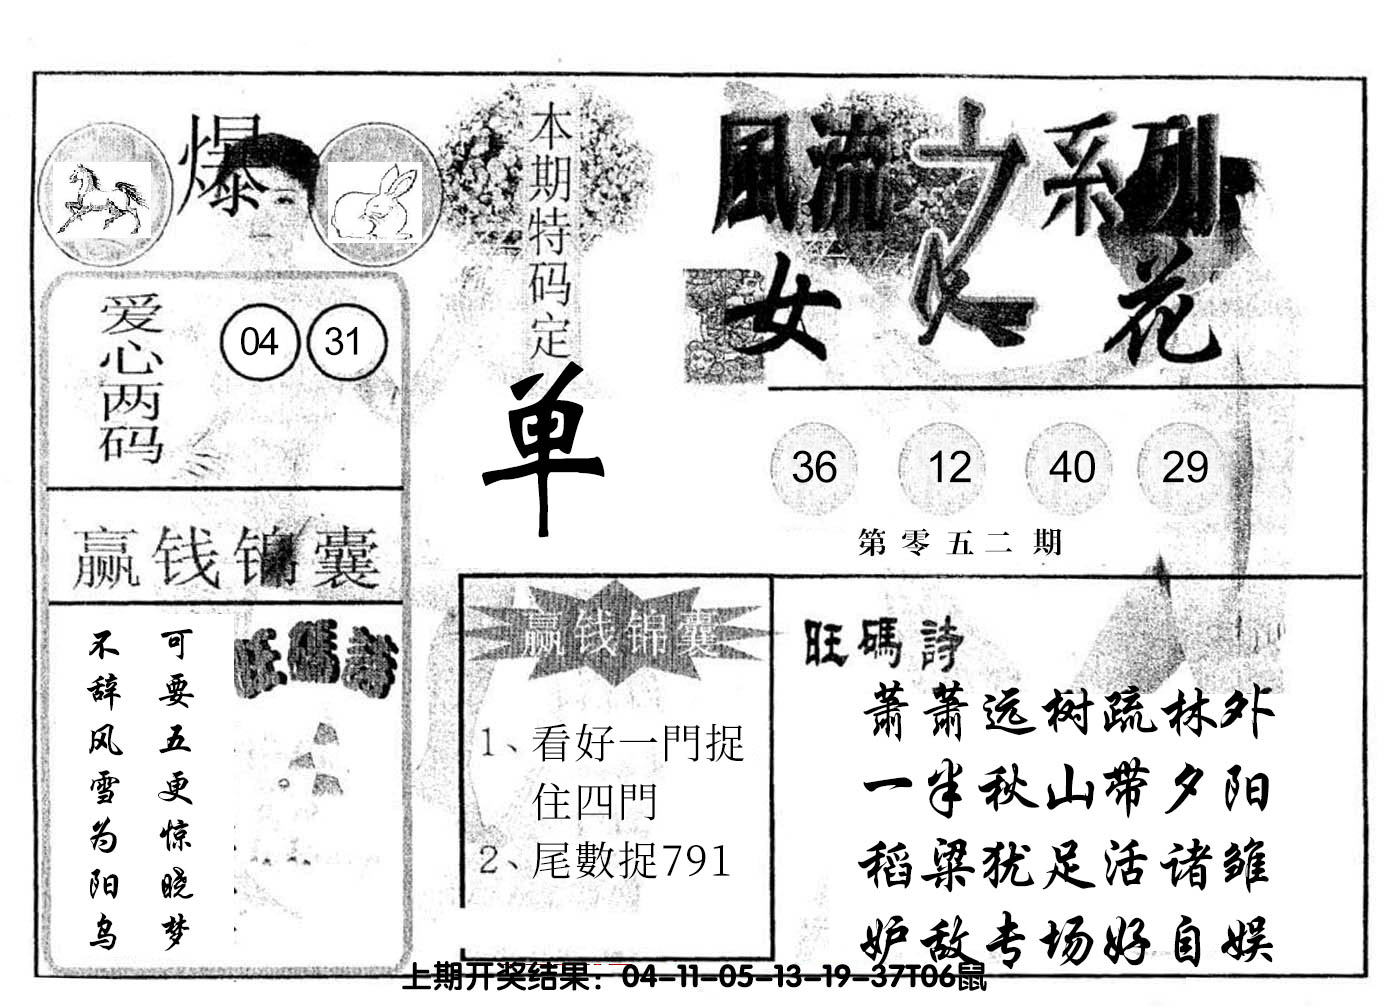 爆
爱心两码
04 31
赢钱锦囊
可要五更惊晓梦
不辞风雪为阳乌
旺碼詩
本期特码定
单
風流之系列
女人花
36 12 40 29
第零五二期
赢钱锦囊
1、看好一門捉
住四門
2、尾數捉791
旺碼詩
萧萧远树疏林外
一半秋山带夕阳
稻粱犹足活诸雏
妒敌专场好自娱
上期开奖结果：04-11-05-13-19-37T06鼠